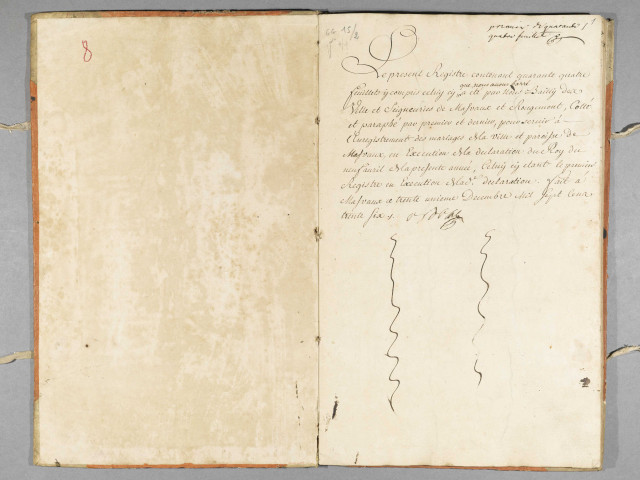 8
premier de quarante
quatre feuillets
Le present Registre contenant quarante quatre
feuillets y compris celuy cy a été par Nous Bailly des
que nous avons
Ville et Seigneuries de Masvaux et Rougemont, Cotté
et paraphé par premier et dernier, pour servir à
l'Enregistrement des mariages de la ville et paroisse de
Masvaux, en Execution de la declaration du Roy du
neuf avril de la presente année, Celuy cy etant le premier
Registre en execution de lad. declaration. fait à
Masvaux ce trente unieme Decembre Mil Sept Cent
trente six